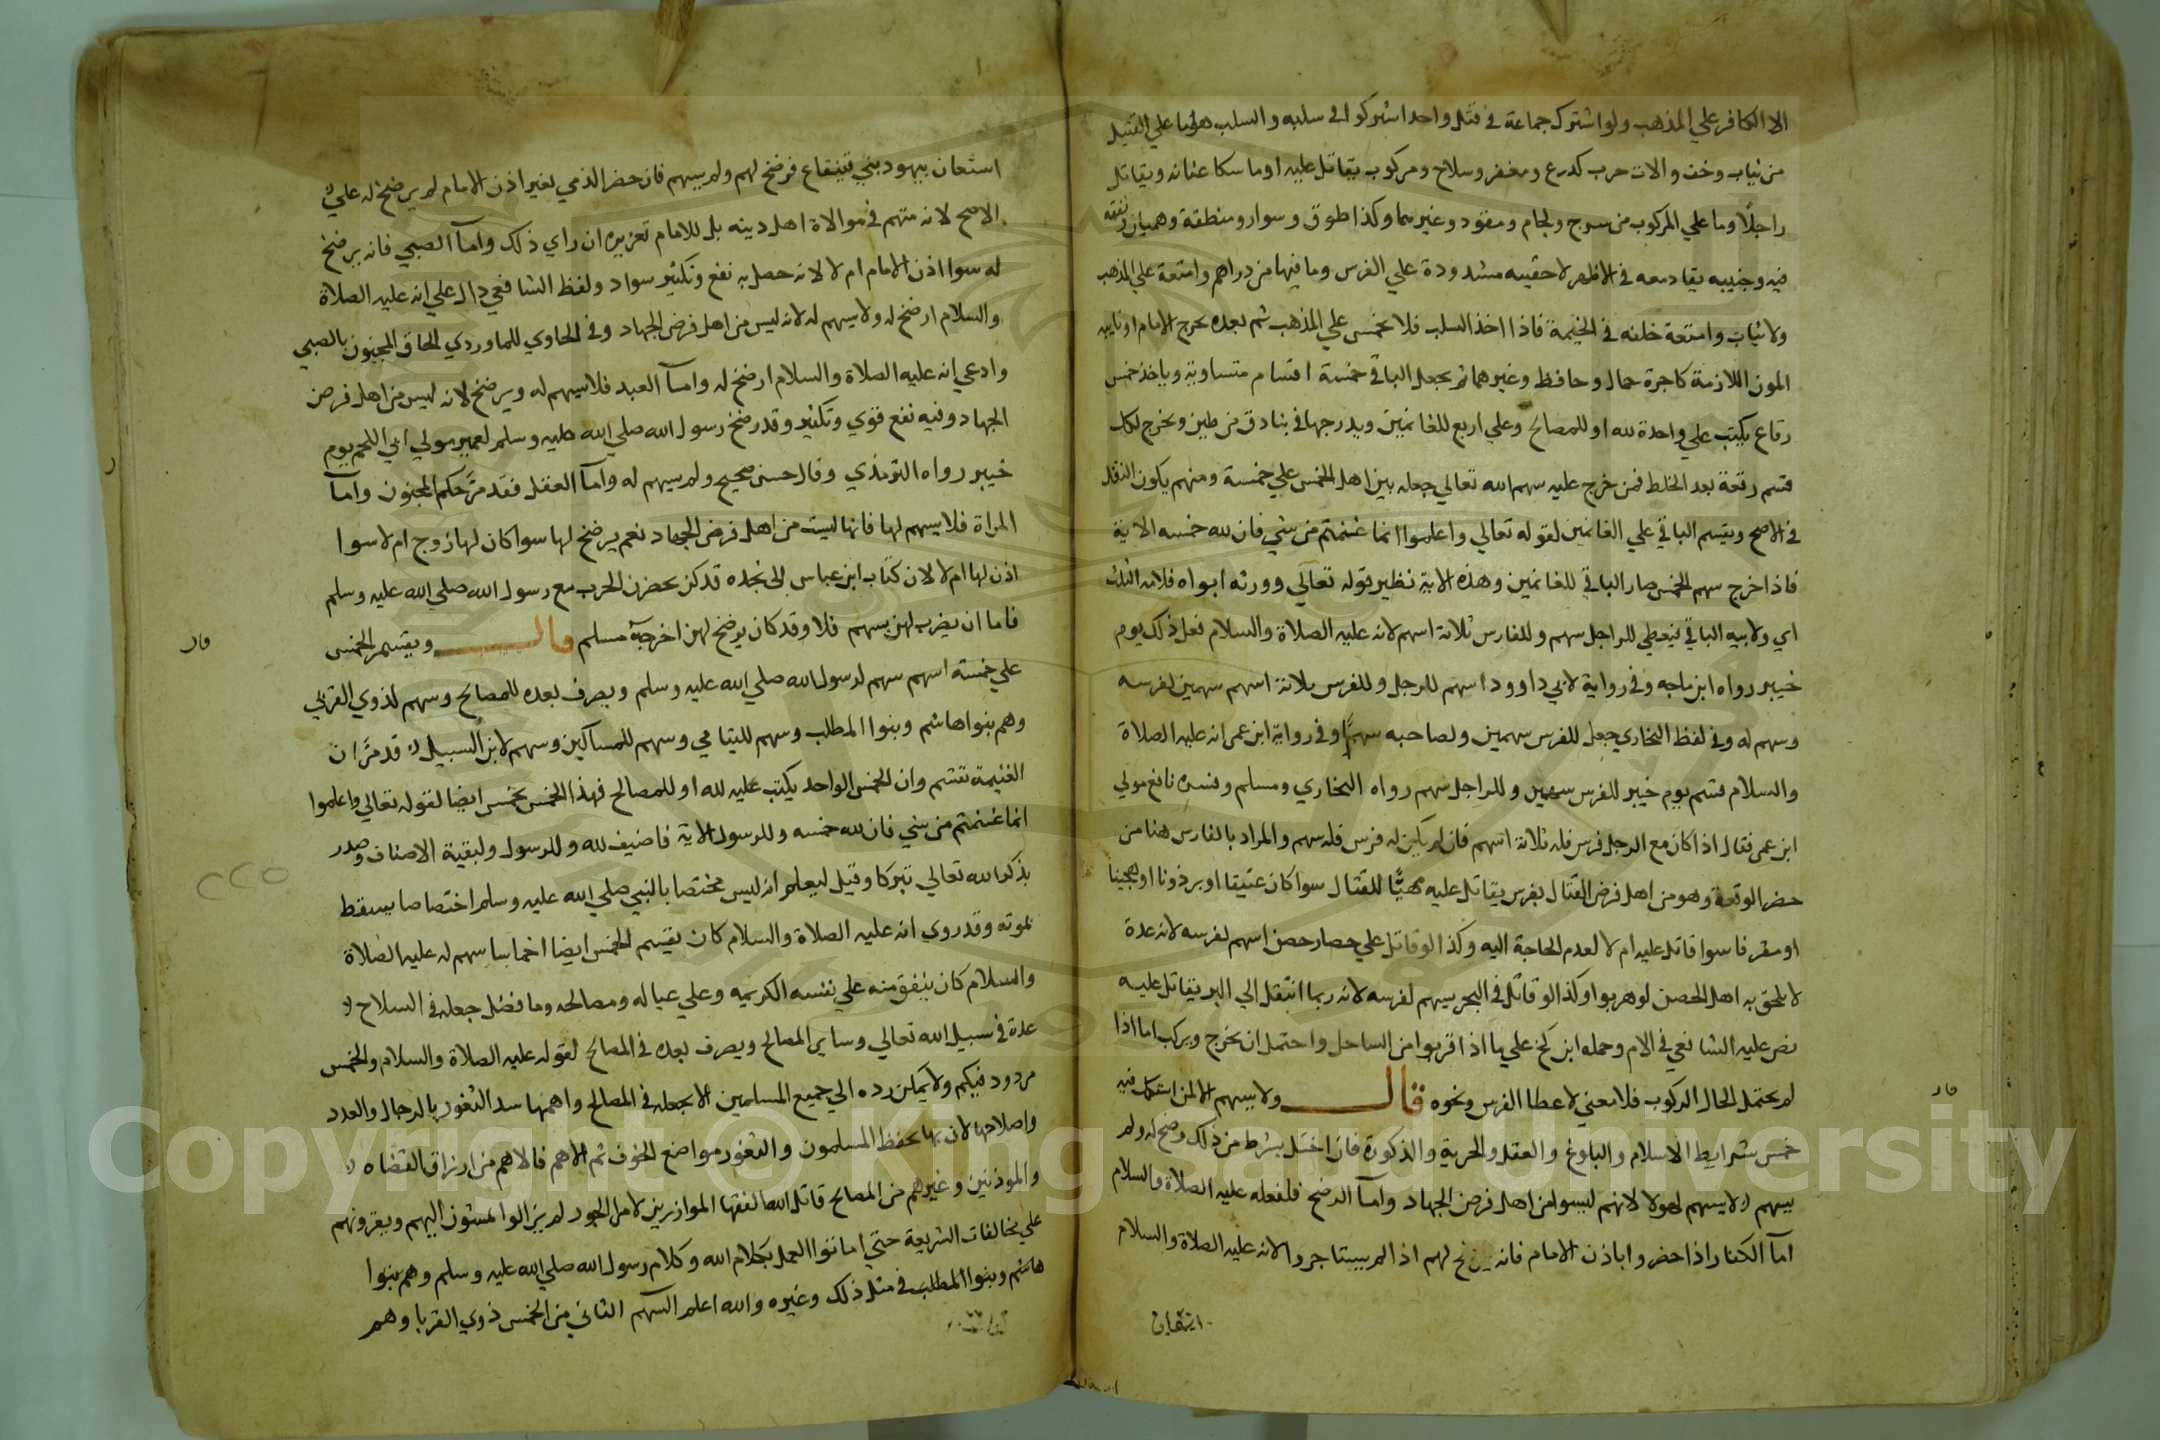 الا الكافر علي المذهب ولو اشترك جماعة في قتل واحد اشتركوا في سلبه والسلب هو ما علي القتيل
من ثياب وخف والات حرب كدرع ومغفر وسلاح ومركوب يقاتل عليه او ماسكا عنانه ويقاتل
راجلًا وما علي المركوب من سرج ولجام ومقود وغيرهما وكذا طوق وسوار ومنطقة وهميان ونفقه
فيه وجنيبه يقاد معه في الاظهر لا حقيبه مشدودة علي الفرس وما فيها من دراهم وامتعة علي المذهب
ولا ثياب وامتعة خلفه في الخيمة فاذا اخذ السلب فلا يخمس علي المذهب ثم بعده يخرج الامام او نايبه
المون اللازمة كاجرة حمال وحافظ وغيرهما ثم يجعل الباقي خمسة اقسام متساوية وياخذ خمس
رقاع يكتب علي واحدة لله او للمصالح وعلي اربع للغانمين ويدرجها في بنادق من طين ويخرج لكل
قسم رقعة بعد الخلط فمن خرج عليه سهم الله تعالي جعله بين اهل الخمس علي خمسة ومنهم يكون النفل
في الاصح ويقسم الباقي علي الغانمين لقوله تعالي واعلموا انما غنمتم من شي فان لله خمسه الاية
فاذا اخرج سهم الخمس صار الباقي للغانمين وهذه الاية نظير قوله تعالي وورثه ابواه فلامه الثلث
اي ولابيه الباقي فيعطي للراجل سهم وللفارس ثلاثة اسهم لانه عليه الصلاة والسلام فعل ذلك يوم
خيبر رواه ابن ماجه وفي رواية لابي داوود اسهم للرجل وللفرس ثلاثة اسهم سهمين لفرسه
وسهم له وفي لفظ البخاري جعل للفرس سهمين ولصاحبه سهمًا وفي رواية ابن عمر انه عليه الصلاة
والسلام قسم يوم خيبر للفرس سهمين وللراجل سهم رواه البخاري ومسلم وفسره نافع مولي
ابن عمر فقال اذا كان مع الرجل فرس فله ثلاثة اسهم فان لم يكن له فرس فله سهم والمراد بالفارس هنا من
حضر الوقعة وهو من اهل فرض القتال بفرس يقاتل عليه مهيًّا للقتال سوا كان عتيقا او برذونا او هجينا
او مقرفا سوا قاتل عليه ام لا لعدم الحاجة اليه وكذا لو قاتل علي حصار حصن اسهم لفرسه لانه عدة
لا يلحق به اهل الحصن لو هربوا وكذا لو قاتل في البحر يسهم لفرسه لانه ربما انتقل الي البر يقاتل عليه
نص عليه الشافعي في الام وحمله ابن كج علي ما اذا قربوا من الساحل واحتمل ان يخرج ويركب اما اذا
لم يحتمل الحال الركوب فلا معني لاعطا الفرس ونحوه قال ولا يسهم الا لمن استكمل فيه
قال
خمس شرايط الاسلام والبلوغ والعقل والحرية والذكورة فان اختل بشرط من ذلك رضخ له ولم
يسهم لا يسهم لهولا لانهم ليسوا من اهل فرض الجهاد وامآ الرضخ فلفعله عليه الصلاة والسلام
امآ الكفار اذا حضروا باذن الامام فانه يرضخ لهم اذا لم يستاجروا لانه عليه الصلاة والسلام
استعان
استعان بيهود بني قينقاع فرضخ لهم ولم يسهم فان حضر الذمي بغير اذن الامام لم يرضخ له علي
الاصح لانه متهم في موالاة اهل دينه بل للامام تعزيره ان راي ذلك وامآ الصبي فانه يرضخ
له سوا اذن الامام ام لا لانه حصل به نفع وتكثير سواد ولفظ الشافعي دال علي انه عليه الصلاة
والسلام ارضخ له ولا يسهم له لانه ليس من اهل فرض الجهاد وفي الحاوي للماوردي الحاق المجنون بالصبي
وادعي انه عليه الصلاة والسلام ارضخ له وامآ العبد فلا يسهم له ويرضخ لانه ليس من اهل فرض
الجهاد وفيه نفع قوي وتكثير وقد رضخ رسول الله صلي الله عليه وسلم لعمير مولي ابي اللحم يوم
خيبر رواه الترمذي وقال حسن صحيح ولم يسهم له وامآ العقل فقد مرّ حكم المجنون وامآ
المراة فلا يسهم لها فانها ليست من اهل فرض الجهاد نعم يرضخ لها سوا كان لها زوج ام لا سوا
اذن لها ام لا لان كتاب ابن عباس الي نجده قد كن يحضرن الحرب مع رسول الله صلي الله عليه وسلم
فاما ان يضرب لهن بسهم فلا وقد كان يرضخ لهن اخرجه مسلم قال ويقسم الخمس
قال
علي خمسة اسهم سهم لرسول الله صلي الله عليه وسلم ويصرف بعده للمصالح وسهم لذوي القربي
وهم بنوا هاشم وبنوا المطلب وسهم لليتامي وسهم للمساكين وسهم لابن السبيل قد مرّ ان
الغنيمة تقسم وان الخمس الواحد يكتب عليه لله او للمصالح فهذا الخمس يخمس ايضا لقوله تعالي واعلموا
انما غنمتم من شي فان لله خمسه وللرسول الاية فاضيف لله وللرسول ولبقية الاصناف وصدر
بذكر الله تعالي تبركا وقيل ليعلم انه ليس مختصا بالنبي صلي الله عليه وسلم اختصاصا يسقط
بموته وقد روي انه عليه الصلاة والسلام كان يقسم الخمس ايضا اخماسا سهم له عليه الصلاة
والسلام كان ينفق منه علي نفسه الكريمه وعلي عياله ومصالحه وما فضل جعله في السلاح
عدة في سبيل الله تعالي وساير المصالح ويصرف بعده في المصالح لقوله عليه الصلاة والسلام والخمس
مردود فيكم ولا يمكن رده الي جميع المسلمين الا بجعله في المصالح واهمها سد الثغور بالرجال والعدد
واصلاحها لان بها يحفظ المسلمون والثغور مواضع الخوف ثم الاهم فالاهم من ارزاق القضاه
والموذنين وغيرهم من المصالح قاتل الله الفقها الموازرين لامر الجور لم يزالوا يمشون اليهم ويقرونهم
علي مخالفات الشريعة حتي اماتوا العمل بكلام الله وكلام رسول الله صلي الله عليه وسلم وهم بنوا
هاشم وبنوا المطلب في مثل ذلك وغيره والله اعلم السهم الثاني من الخمس ذوي القربا وهم
Copyright © King Saud University